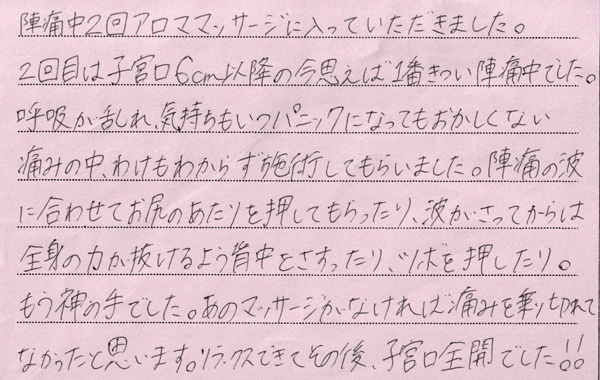 陣痛中2回アロママッサージに入っていただきました。
2回目は子宮口6cm以降の今思えば1番きつい陣痛中でした。
呼吸が乱れ、気持ちもいつパニックになってもおかしくない
痛みの中、わけもわからず施術してもらいました。陣痛の波
に合わせてお尻のあたりを押してもらったり、波がさってからは
全身の力が抜けるよう背中をさすったり、ツボを押したり。
もう神の手でした。あのマッサージがなければ痛みを乗り切れて
なかったと思います。リラックスできてその後、子宮口全開でした!!